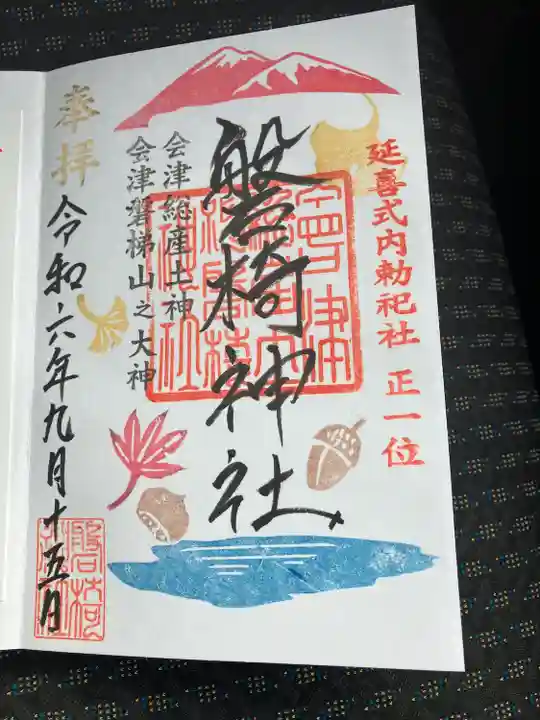 延喜式内勅祀社 正一位
磐椅神社
会津総産土神
会津磐梯山之大神
奉拝
令和六年九月十五日
磐椅